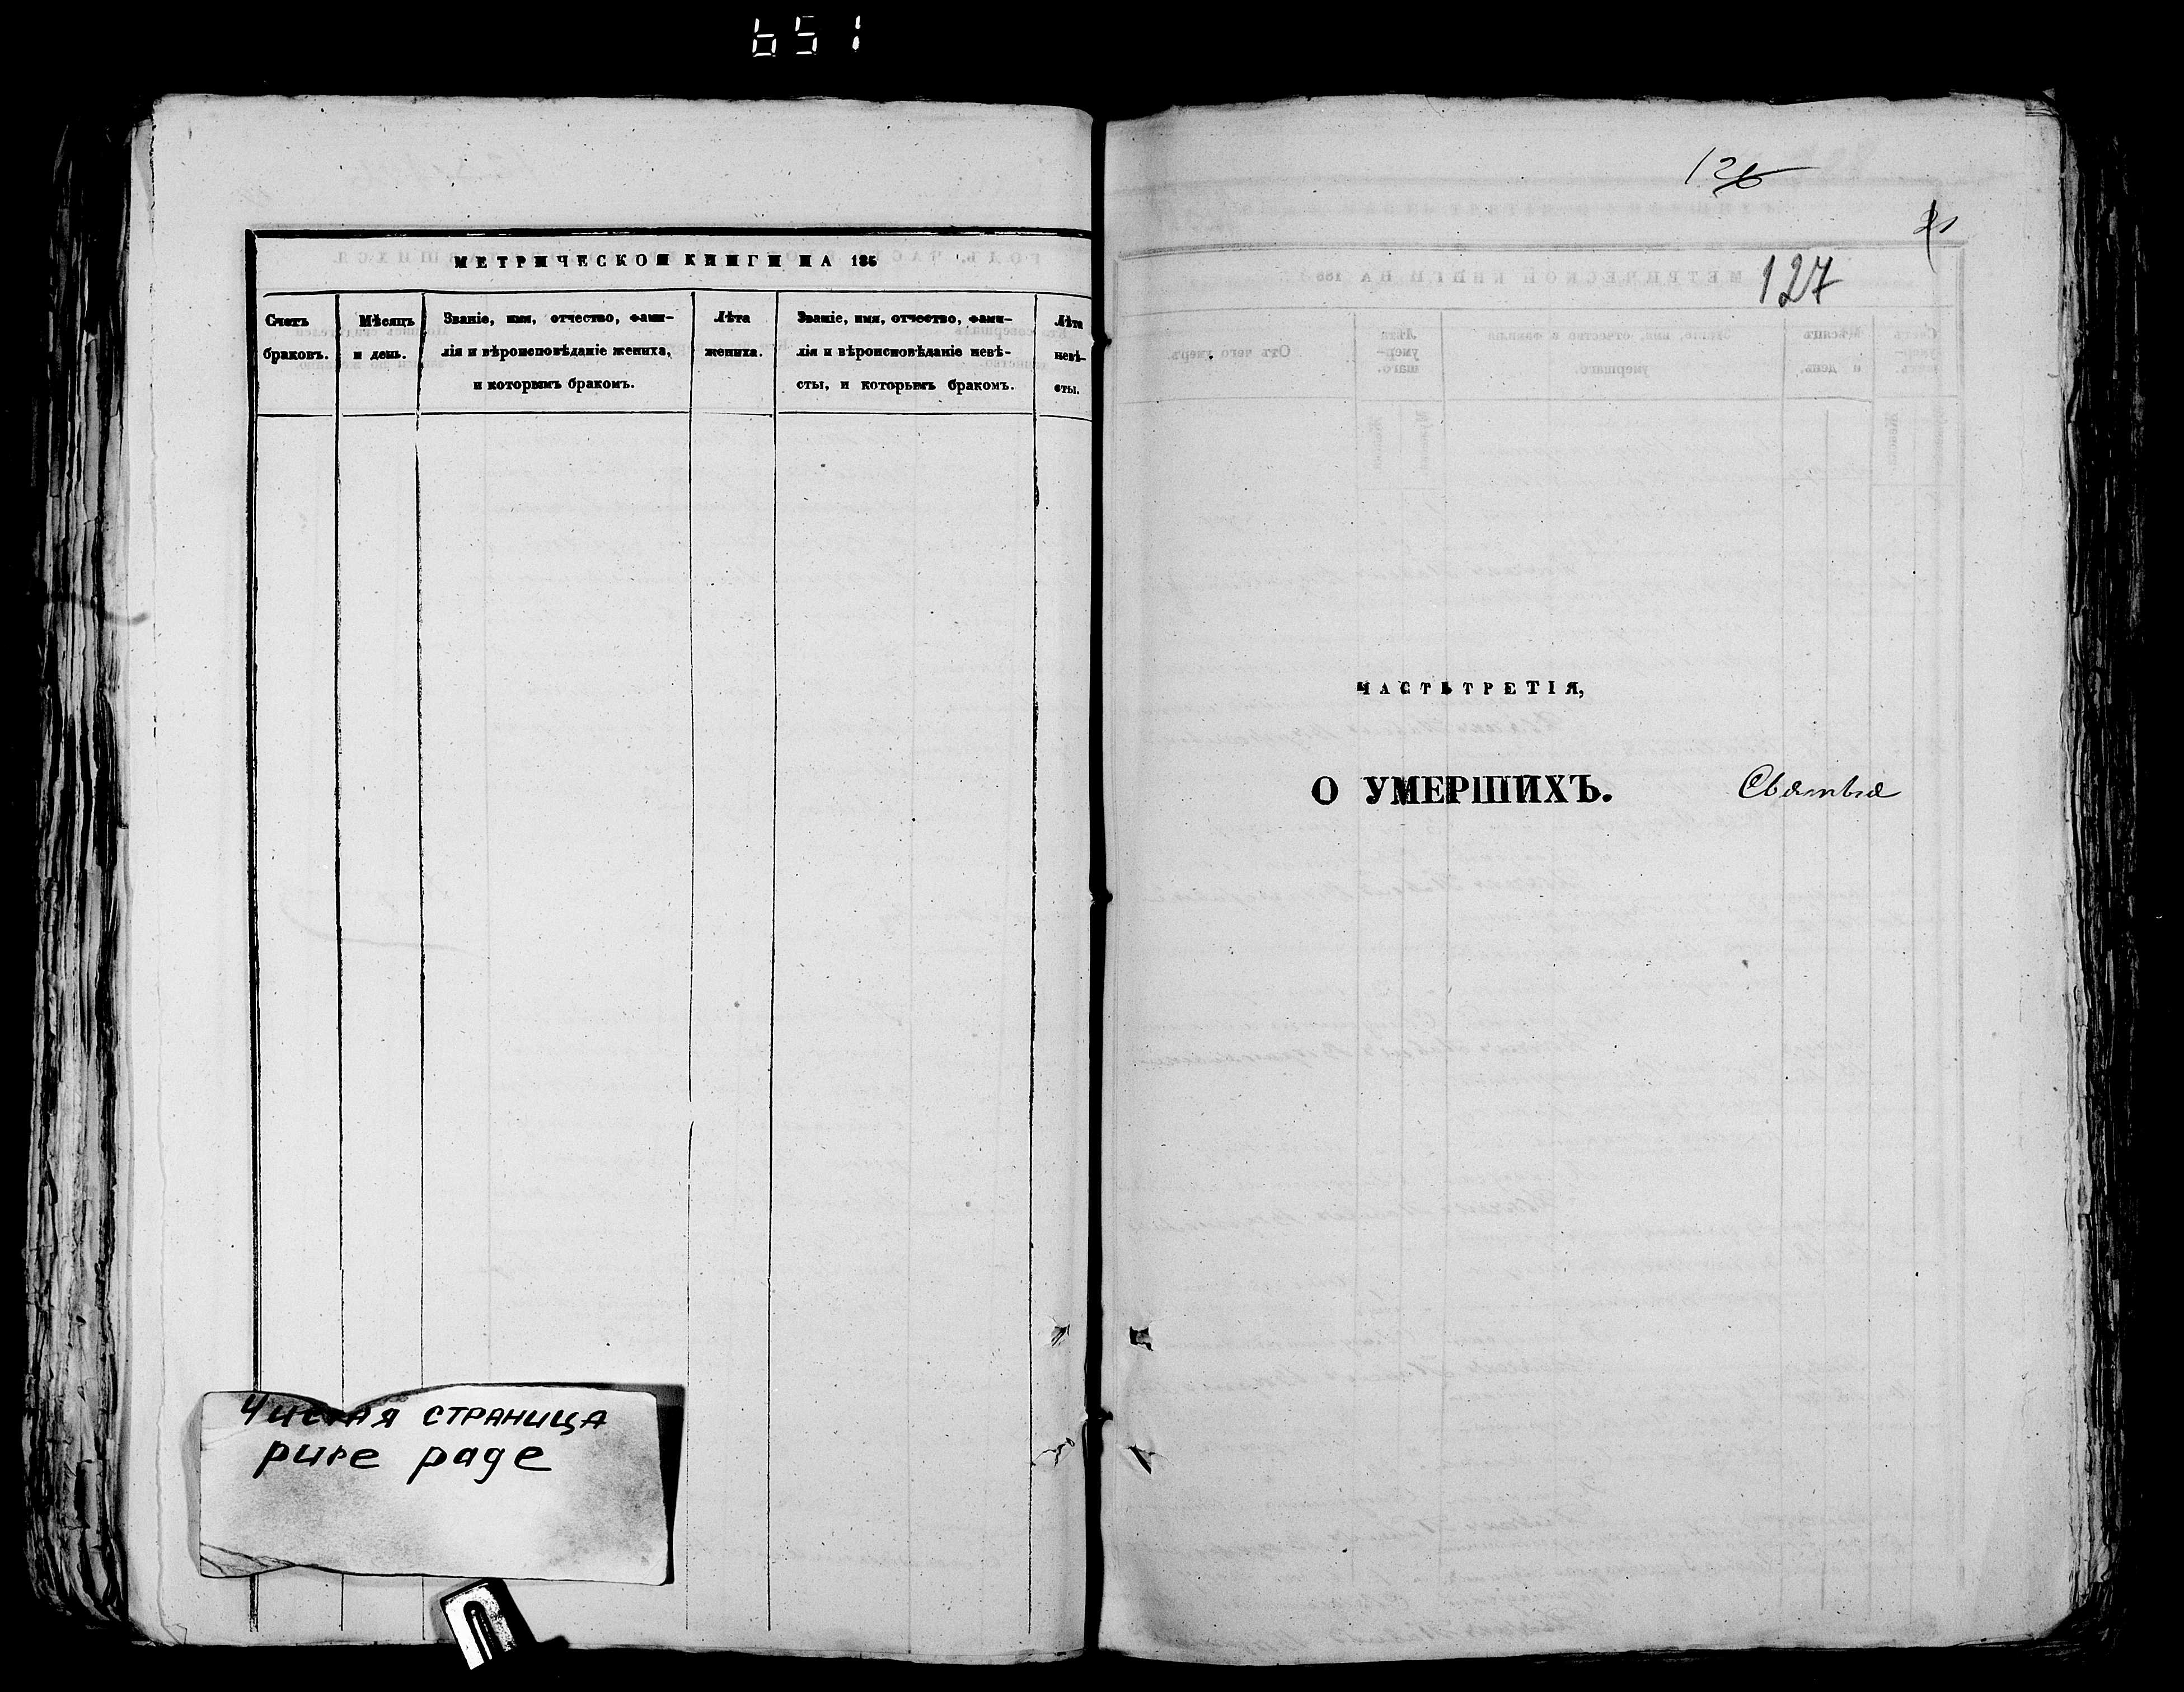 651
МЕТРИЧЕСКОЙ КНИГИ НА 185
Счетъ браковъ.
Мѣсяцъ и день.
Званіе, имя, отчество, фами-
лія и вѣроисповѣданіе жениха,
и которымъ бракомъ.
Лѣта жениха.
Званіе, имя, отчество, фами-
лія и вѣроисповѣданіе невѣ-
сты, и которымъ бракомъ.
Лѣта невѣ-
сты.
Чистая страница
pure page
126
21
127
ЧАСТЬ ТРЕТІЯ,
О УМЕРШИХЪ.